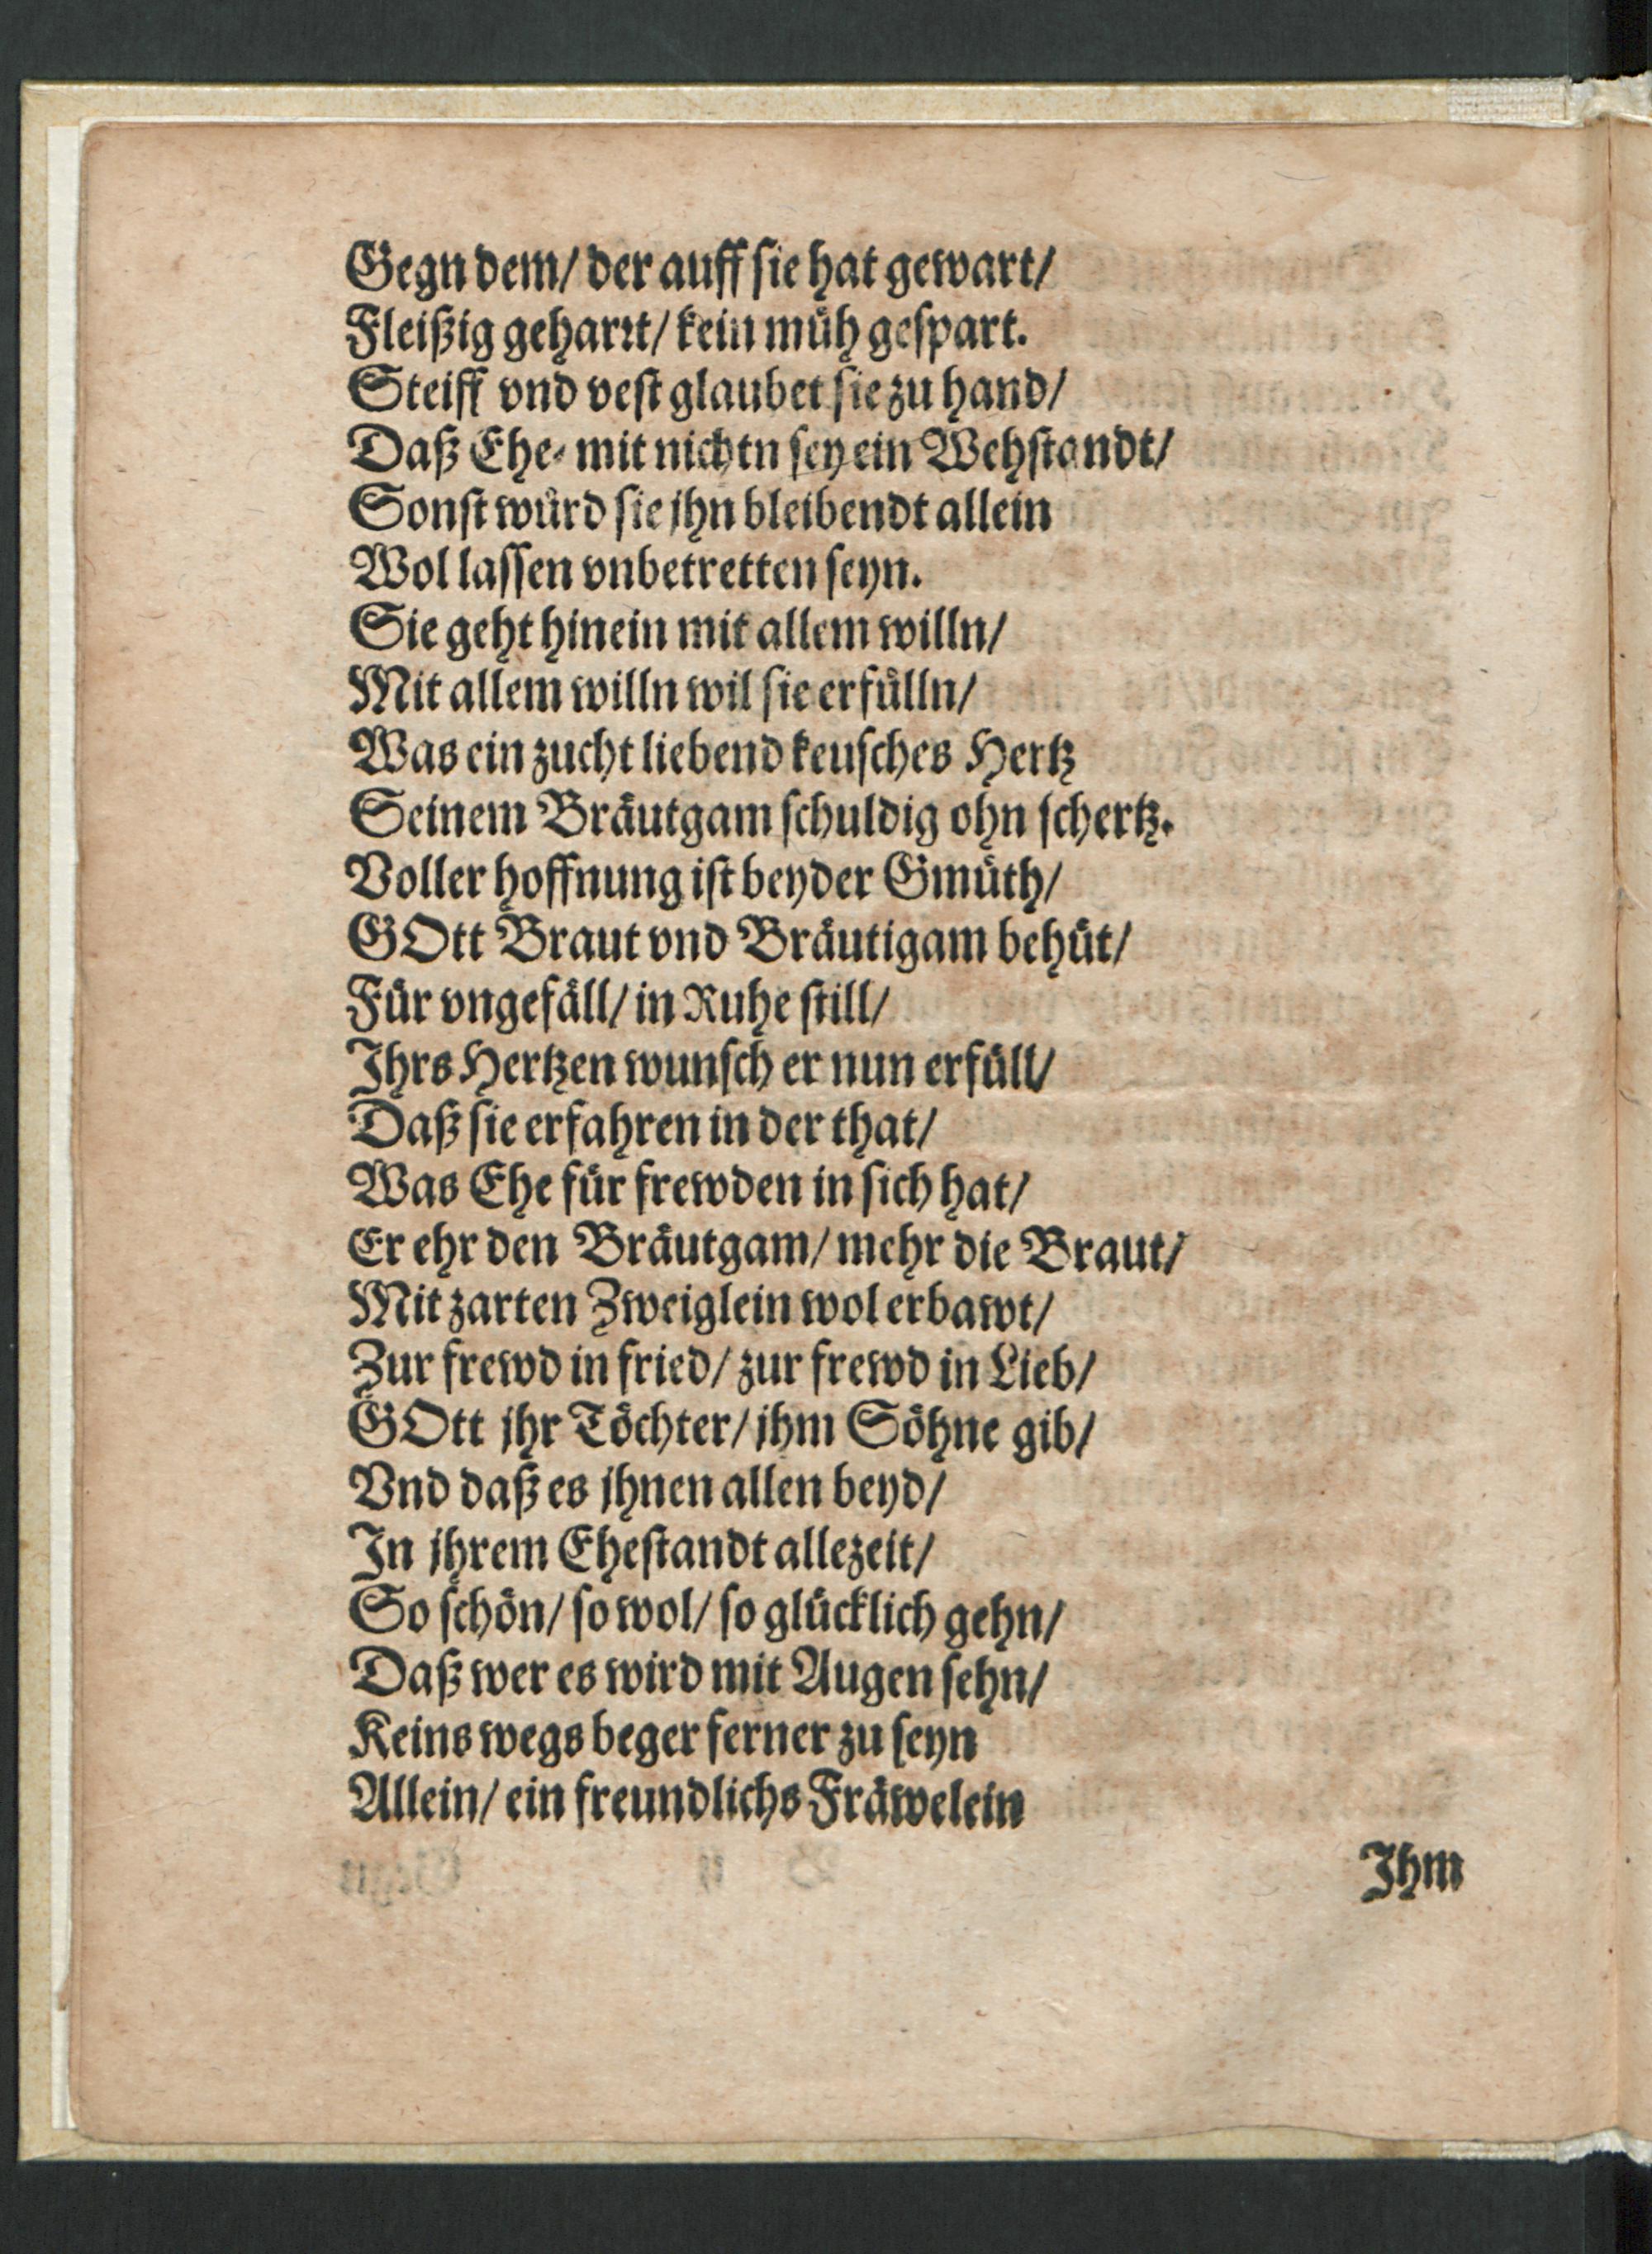 Gegn dem/ der auff ſie hat gewart/
Fleißig geharꝛt/ kein müh geſpart.
Steiff vnd veſt glaubet ſie zu hand/
Daß Ehe- mit nichtn ſey ein Wehſtandt/
Sonſt würd ſie jhn bleibendt allein
Wol laſſen vnbetretten ſeyn.
Sie geht hinein mit allem willn/
Mit allem willn wil ſie erfülln/
Was ein zucht liebend keuſches Hertz
Seinem Bräutgam ſchuldig ohn ſchertz.
Voller hoffnung iſt beyder Gmüth/
GOtt Braut vnd Bräutigam behüt/
Für vngefäll/ in Ruhe ſtill/
Ihrs Hertzen wunſch er nun erfüll/
Daß ſie erfahren in der that/
Was Ehe für frewden in ſich hat/
Er ehr den Bräutgam/ mehr die Braut/
Mit zarten Zweiglein wol erbawt/
Zur frewd in fried/ zur frewd in Lieb/
GOtt jhr Töchter/ jhm Söhne gib/
Vnd daß es jhnen allen beyd/
In jhrem Eheſtandt allezeit/
So ſchön/ ſo wol/ ſo glücklich gehn/
Daß wer es wird mit Augen ſehn/
Keins wegs beger ferner zu ſeyn
Allein/ ein freundlichs Fräwelein
Ihm